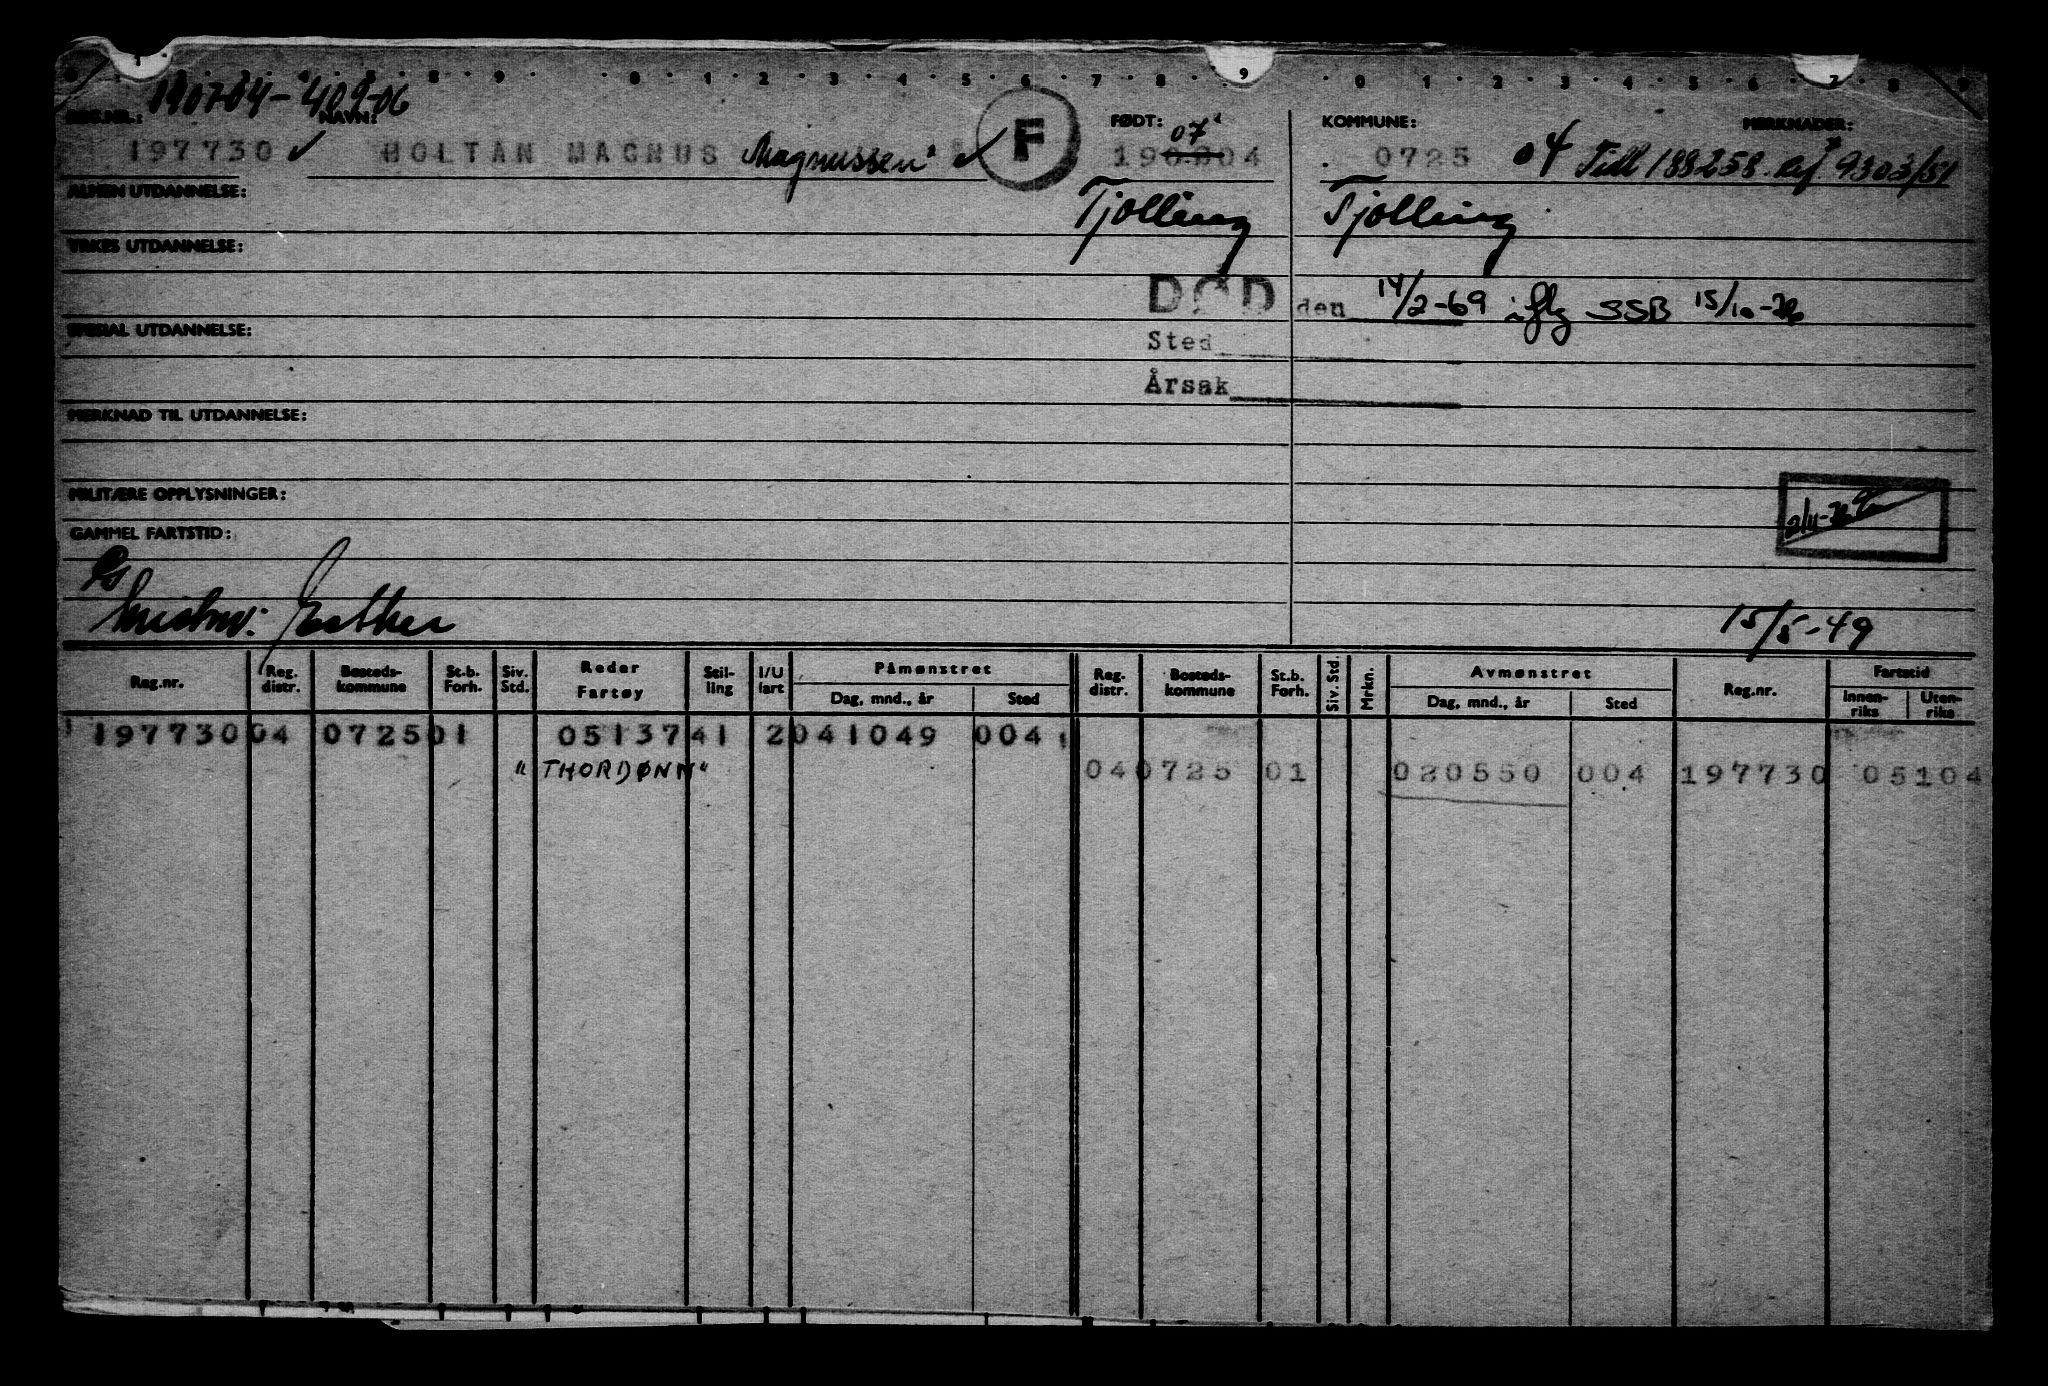 190704-40906
REG.NR.: NAVN: F FØDT: 07 KOMMUNE: MERKNADER:
197730 ✓ HOLTAN MAGNUS Magnussen ✓ 190804 0725 04 Tidl 188258. Ref 9303/51
ALMEN UTDANNELSE: Tjølling Tjølling
YRKES UTDANNELSE:
DØD den 14/2-69 iflg SSB 15/10-76
SPESIAL UTDANNELSE: Sted
Årsak
MERKNAD TIL UTDANNELSE:
MILITÆRE OPPLYSNINGER:
GAMMEL FARTSTID:
Esther 15/5-49
Reg.nr. Reg. distr. Bosteds-kommune St.b. Forh. Siv. Std. Reder Fartøy Stil-ling I/U fart Påmønstret Dag, mnd., år Sted Reg. distr. Bosteds-kommune St.b. Forh. Siv. Std. Mrkn. Avmønstret Dag, mnd., år Sted Reg.nr. Fartstid Innen-riks Uten-riks
197730 04 0725 01 051374 1 2 041049 004
"THORDØNN" 04 0725 01 020550 004 197730 05104